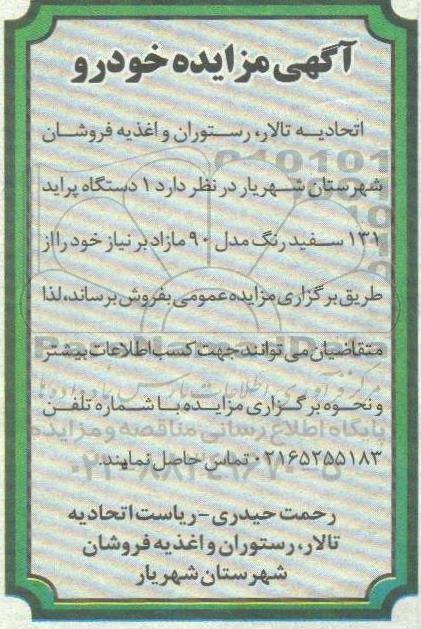 آگهی مزایده خودرو
اتحادیه تالار، رستوران و اغذیه فروشان
شهرستان شهریار در نظر دارد ۱ دستگاه پراید
۱۳۱ سفید رنگ مدل ۹۰ مازاد بر نیاز خود را از
طریق برگزاری مزایده عمومی بفروش برساند، لذا
متقاضیان می توانند جهت کسب اطلاعات بیشتر
و نحوه برگزاری مزایده با شماره تلفن
۰۲۱۶۵۲۵۵۱۸۳ تماس حاصل نمایند.
رحمت حیدری - ریاست اتحادیه
تالار، رستوران و اغذیه فروشان
شهرستان شهریار
پایگاه اطلاع رسانی مناقصه و مزایده